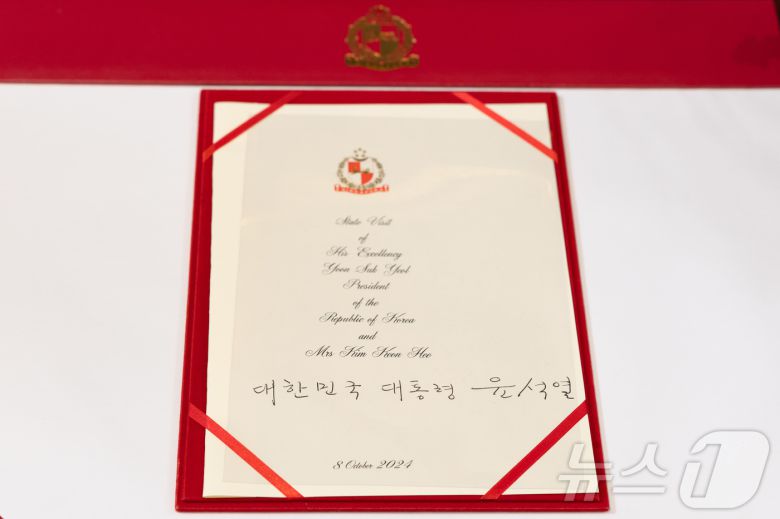 State Visit
of
His Excellency
Yoon Suk Yeol
President
of the
Republic of Korea
and
Mrs Kim Keon Hee
대한민국 대통령 윤석열
8 October 2024
뉴스1